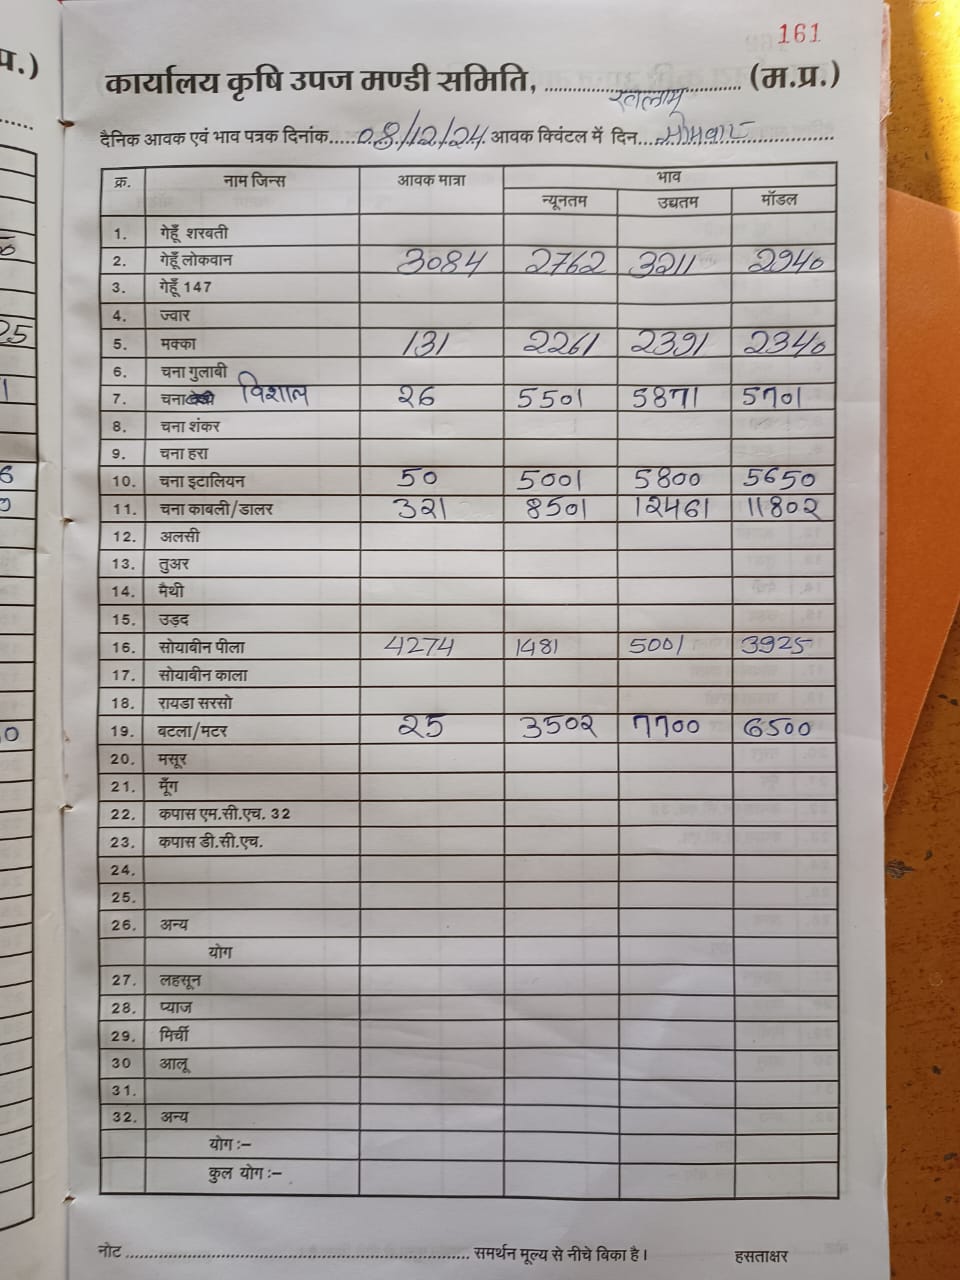 161
कार्यालय कृषि उपज मण्डी समिति, रतलाम (म.प्र.)
दैनिक आवक एवं भाव पत्रक दिनांक 08/12/24 आवक क्विंटल में दिन सोमवार
क्र. नाम जिन्स आवक मात्रा भाव
न्यूनतम उच्चतम मॉडल
1. गेहूँ शरबती
2. गेहूँ लोकवान 3084 2762 3211 2940
3. गेहूँ 147
4. ज्वार
5. मक्का 131 2261 2391 2340
6. चना गुलाबी
7. चना विशाल 26 5501 5871 5701
8. चना शंकर
9. चना हरा
10. चना इटालियन 50 5001 5800 5650
11. चना काबली/डालर 321 8501 12461 11802
12. अलसी
13. तुअर
14. मैथी
15. उड़द
16. सोयाबीन पीला 4274 1481 5001 3925
17. सोयाबीन काला
18. रायडा सरसो
19. बटला/मटर 25 3502 7700 6500
20. मसूर
21. मूँग
22. कपास एम.सी.एच. 32
23. कपास डी.सी.एच.
24.
25.
26. अन्य
योग
27. लहसून
28. प्याज
29. मिर्ची
30 आलू
31.
32. अन्य
योग :–
कुल योग :–
नोट समर्थन मूल्य से नीचे बिका है। हसताक्षर